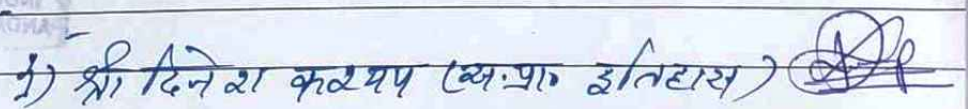 1) श्री दिनेश कश्यप (स.प्रा. इतिहास)